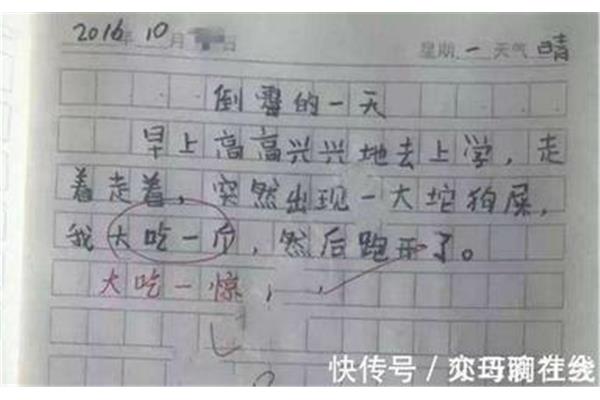 2016年10月 日 星期一 天气 晴
倒霉的一天
早上高高兴兴地去上学，走
着走着，突然出现一大坨狗屎，
我大吃一斤，然后跑开了。
大吃一惊，
快传号／